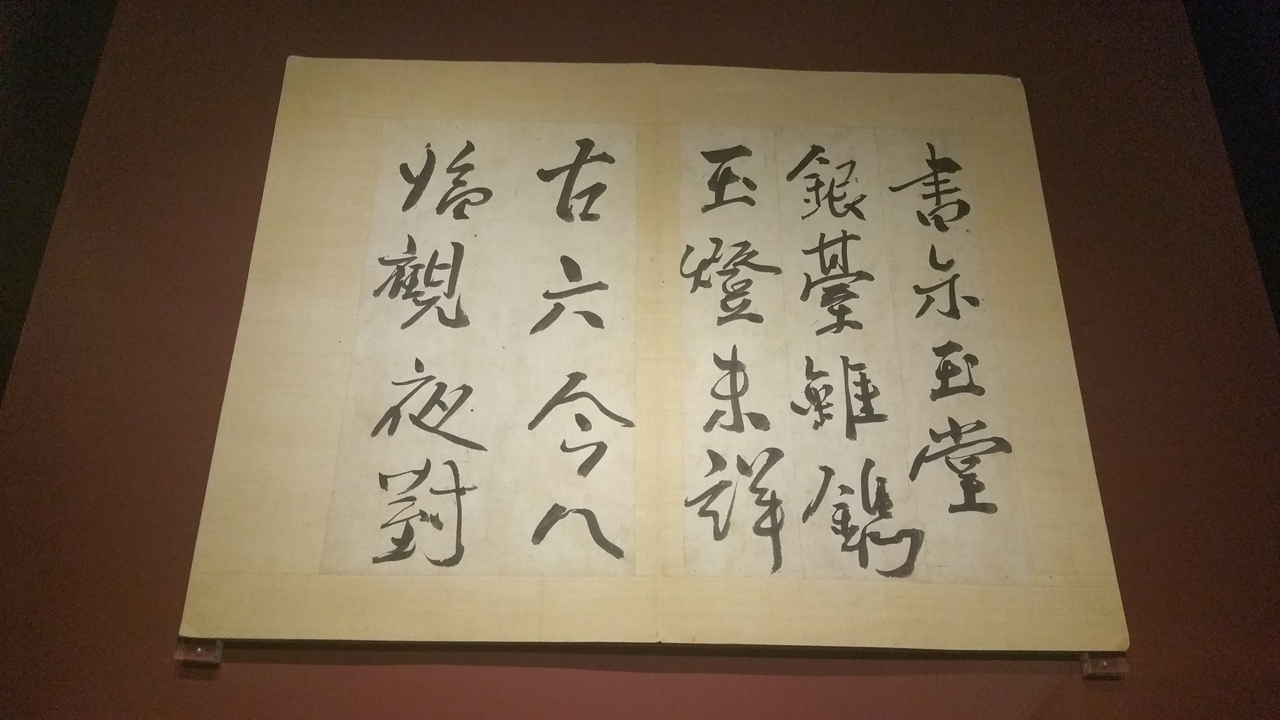 書示玉堂
銀臺雖鐫
玉燈未詳
古六今八
觀夜對